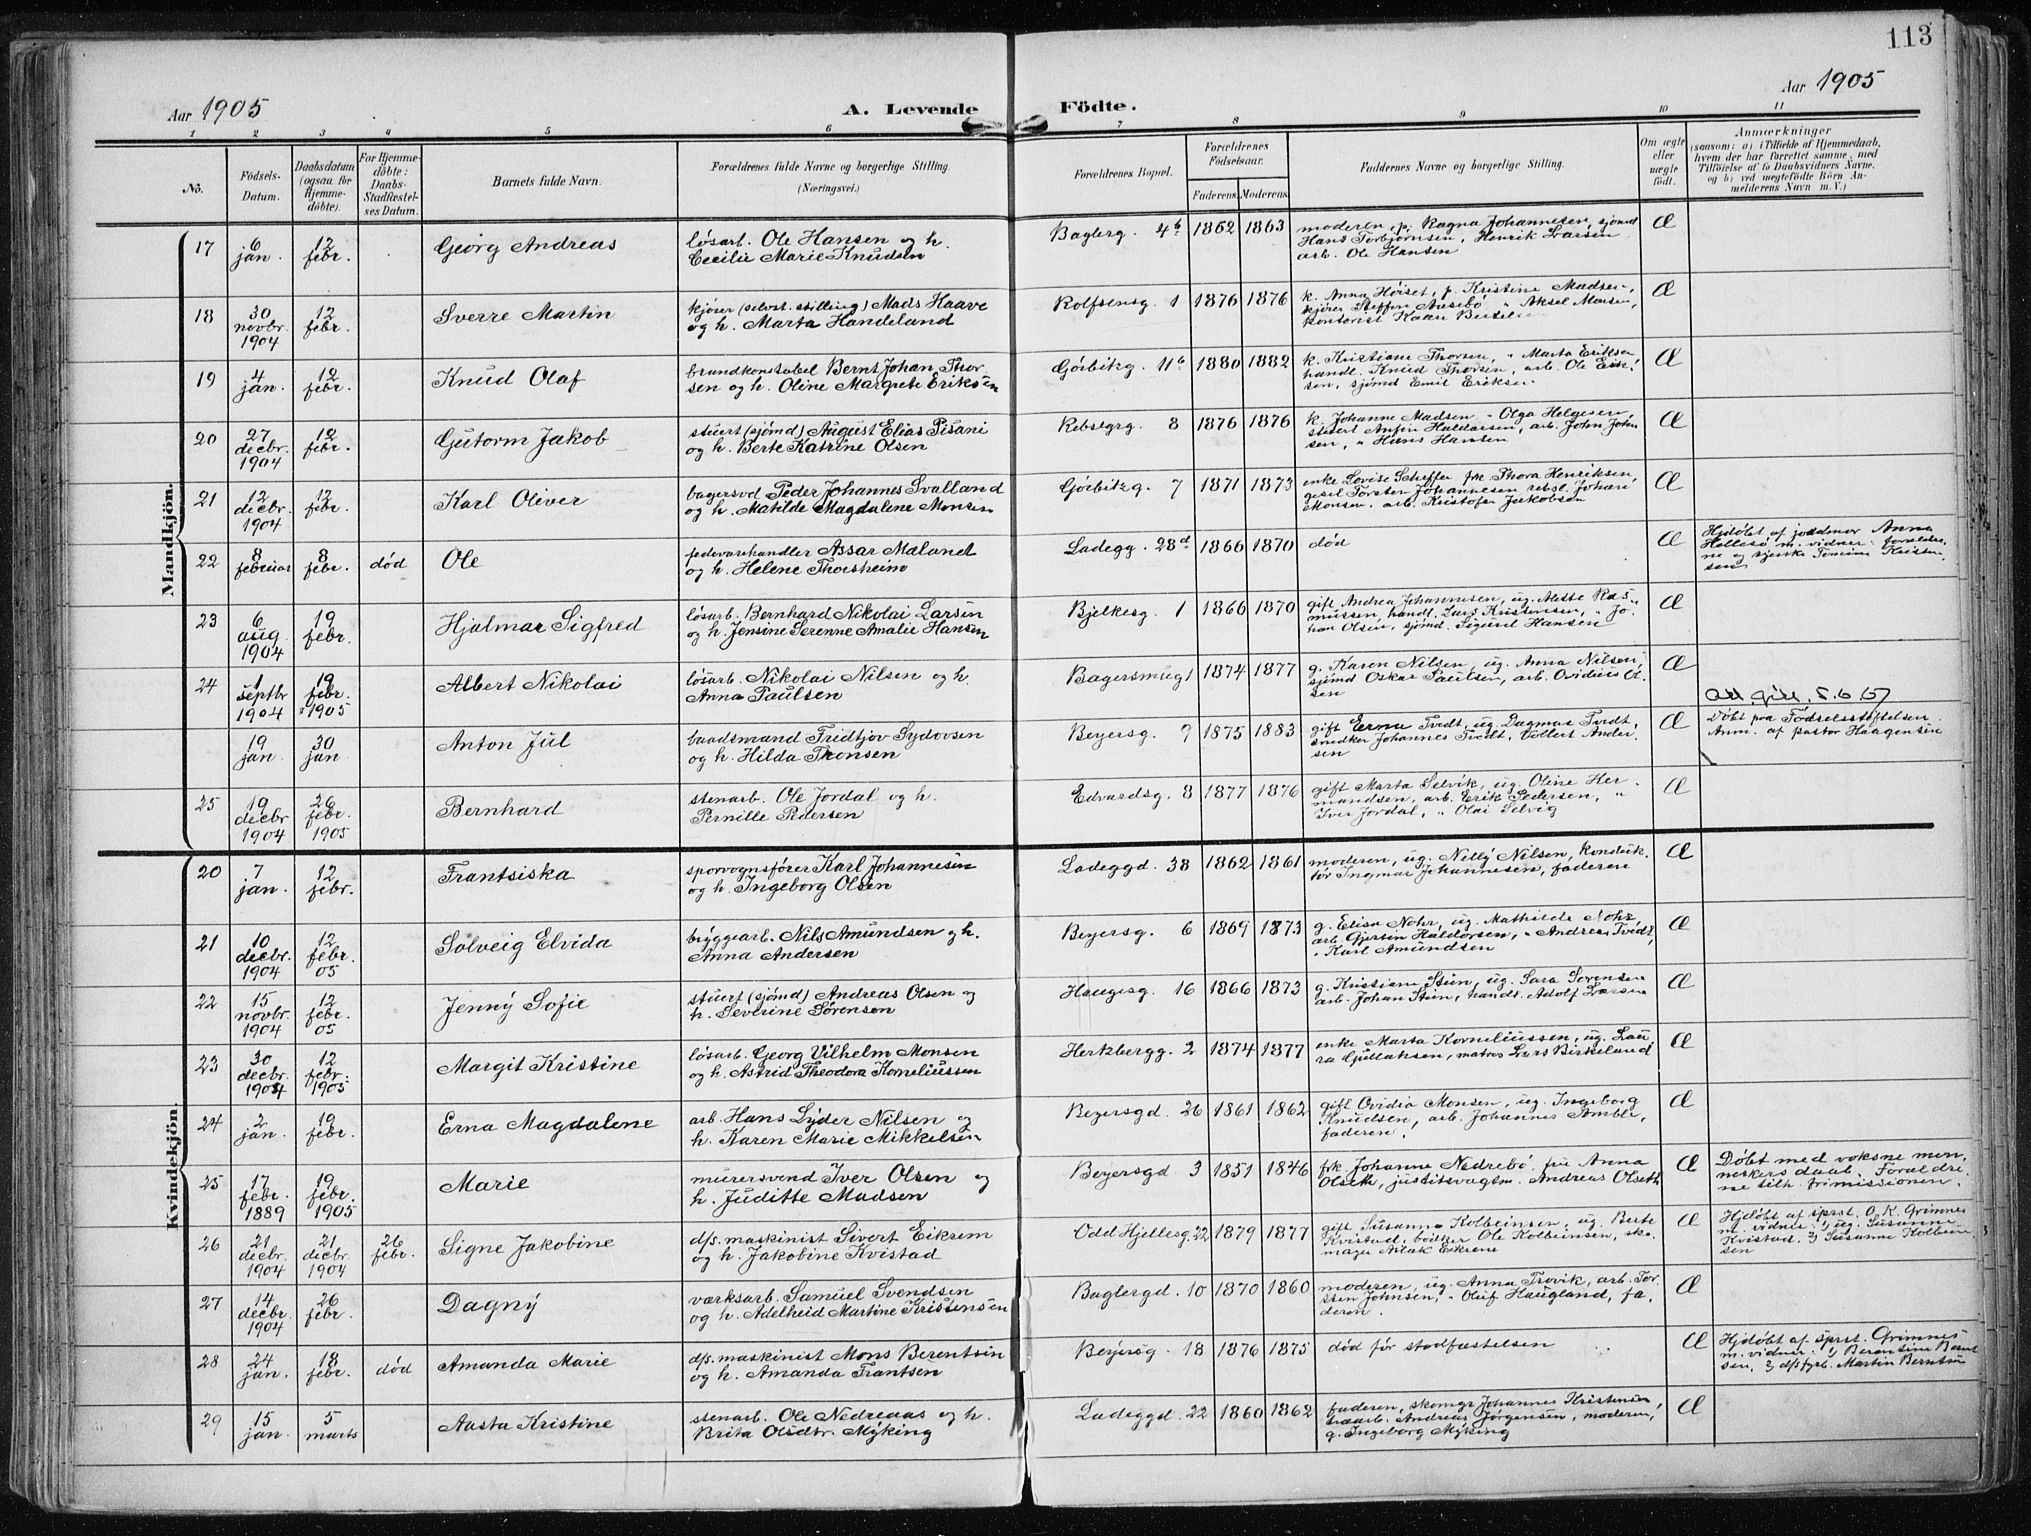 113
Aar 1905
A. Levende Födte.
Aar 1905
1 2 3 4 5 6 7 8 9 10 11
No.
Födsels-Datum.
Daabsdatum (ogsaa for Hjemme-döbte).
For Hjemme-döbte: Daabs-Stadfæstel-ses Datum.
Barnets fulde Navn.
Forældrenes fulde Navne og borgerlige Stilling.
(Næringsvei.)
Forældrenes Bopæl.
Forældrenes Födselsaar.
Faderens. Moderens.
Faddernes Navne og borgerlige Stilling.
Om ægte eller uægte födt.
Anmærkninger
(saasom: a) i Tilfælde af Hjemmedaab,
hvem der har forrettet samme, med
Tilföielse af to Daabsvidners Navne,
og b) ved uægtefödte Börn An-
melderens Navn m. V.)
Mandkjön.
17 6 jan. 12 febr. Georg Andreas
løsarb. Ole Hansen og h.
Cecilie Marie Knudsen
Baglerg. 4b 1862 1863
moderen, p. Ragna Johannesen, sjömd
Hans Torbjörnsen, Henrik Larsen
arb. Ole Hansen
Æ
18 30 novbr. 1904 12 febr. Sverre Martin
kjører (selvst. stilling) Mads Haave
og h. Marta Handeland
Rolfsensg. 1 1876 1876
k. Anna Höiset, p. Kristine Madsen,
kjörer Steffen " Aksel Monsen,
kontorist Kaare Bertelsen
Æ
19 4 jan. 12 febr. Knud Olaf
brandkonstabel Bernt Johan Thor-
sen og h. Oline Margrete Eriksen
Görbitzg. 11b 1880 1882
k. Kristiane Thorsen, " Marta Eriksen
handl. Knud Thorsen, arb. Ole Erik-
sen, sjömd Emil Eriksen
Æ
20 27 decbr. 1904 12 febr. Gutorm Jakob
stuert (sjömd) August Elias Pisani
og h. Berte Katrine Olsen
Rebslgrg. 8 1876 1876
k. Johanne Madsen " Olga Helgesen
stuert Anfin Haldorsen, arb. John John-
sen, " Hans Hansen
Æ
21 12 decbr. 1904 12 febr. Karl Oliver
bagersvd Peder Johannes Svalland
og h. Matilde Magdalene Monsen
Görbitzg. 7 1871 1873
enke Lovise Scheffer frk Thora Henriksen
gesel Torsten Johannesen rebsl. Johan
Monsen. arb. Kristofer Jakobsen
Æ
22 8 februar 8 febr. død Ole
fedevarehandler Assar Mæland
og h. Helene Thorsheim
Ladegg. 28d 1866 1870 død Æ
Hjdøbt af jordmor Anna
Hellesö m. vidner: forældre-
ne og sjerske Tomine Kristen-
sen
23 6 aug. 1904 19 febr. Hjalmar Sigfred
løsarb. Bernhard Nikolai Larsen
og h. Jensine Serenne Amalie Hansen
Bjelkesg. 1 1866 1870
gift Andrea Johannesen, ug. Alette Ras-
mussen, handl. Lars Kristensen, " Jo-
han Olsen, sjömd. Sigurd Hansen
Æ
24 1 septbr 1904 19 febr. 1905 Albert Nikolai
løsarb. Nikolai Nilsen og h.
Anna Paulsen
Bagersmug 1 1874 1877
g. Karen Nilsen, ug. Anna Nilsen,
sjömd Oskar Paulsen, arb. Ovidius Ol-
sen
Æ
19 jan. 30 jan. Anton Jul
baadsmand Fridtjov Sydovsen
og h. Hilda Thonsen
Beyersg. 7 1875 1883
gift Erna Tvedt, ug. Dagmar Tvedt,
snedker Johannes Tvedt, Volbert Ander-
sen
Æ
Døbt paa Födselsstiftelsen
Anm. af pastor Haagensen
25 19 decbr 1904 26 febr. 1905 Bernhard
stenarb. Ole Jordal og h.
Pernille Pedersen
Edvardsg. 8 1877 1876
gift Marta Selvik, ug. Oline Her-
mandsen, arb. Erik Pedersen, "
Iver Jordal, " Olai Selvig
Æ
Kvindekjön.
20 7 jan. 12 febr. Frantsiska
sporvognsfører Karl Johannesen
og h. Ingeborg Olsen
Ladeggd. 38 1862 1861
moderen, ug. Nelly Nilsen, konduk-
tör Ingmar Johannesen, faderen
Æ
21 10 decbr. 1904 12 febr. 05 Solveig Elvida
bryggearb. Nils Amundsen og h.
Anna Andersen
Beyersg. 6 1869 1873
g. Elisa Nohr, ug. Mathilde Nohr,
arb. Gjertin Haldorsen, " Andreas Tvedt,
" Karl Amundsen
Æ
22 15 novbr. 1904 12 febr. 05 Jenny Sofie
stuert (sjömd) Andreas Olsen og
h. Severine Sörensen
Haugesg. 16 1866 1873
g. Kristiane Stien, ug. Sara Sörensen
arb. Johan Stien, handl. Adolf Larsen
Æ
23 30 decbr. 1904 12 febr. 1905 Margit Kristine
løsarb. Georg Vilhelm Monsen
og h. Astrid Theodora Korneliussen
Hertzbergg. 2 1874 1877
enke Marta Korneliussen, ug. Lau-
ra Gullaksen, matros Lars Birkeland
Æ
24 2 jan. 19 febr. Erna Magdalene
arb. Hans Lyder Nilsen og
h. Karen Marie Mikkelsen
Beyersgd. 26 1861 1862
gift Ovidia Monsen, ug. Ingeborg
Knudsen, arb. Johannes Amble,
faderen.
Æ
25 17 febr. 1889 19 febr. 1905 Marie
murersvend Iver Olsen og
h. Juditte Madsen
Beyersgd 3 1851 1846
frk. Johanne Nedrebö, fru Anna
Olseth, justitsvagtm. Andreas Olseth
Æ
Døbt med voksne men-
neskers daab. Forældre-
ne tilh. frimissionen.
26 21 decbr. 1904 21 decbr. 1904 26 febr. Signe Jakobine
d/s. maskinist Sivert Eikrem
og h. Jakobine Kvistad
Odd Hjellesg. 22 1879 1877
gift Susanne Kolbeinsen, ug. Berte
Kvistad, bödker Ole Kolbeinsen, sko-
mager Aslak Eikrem
Æ
Hjdøbt af sprst. O. K. Grimnes
m. vidner: 1) ug. Susanne
Kvistad, 2) Susanne Kolbein-
sen
27 14 decbr. 1904 26 febr. Dagny
værksarb. Samuel Svendsen
og h. Adelheid Martine Kristensen
Baglergd. 10 1870 1860
moderen, ug. Anna Trovik, arb. Tor-
sten Johnsen, " Oluf Haugland, fa-
deren.
Æ
28 24 jan. 18 febr. død Amanda Marie
d/s. maskinist Mons Berentsen
og h. Amanda Frantsen
Beyersg. 18 1876 1875 død før stadfæstelsen Æ
Hjdøbt af sprst. Grimnes
m. vidner: 1) Berentine Bernt-
sen, 2) d/sfyrb. Martin Berntsen
29 15 jan. 5 marts Aasta Kristine
stenarb. Ole Nedreaas og h.
Brita Olsdtr. Myking
Ladeggd. 22 1860 1862
faderen, skomgr Johannes Kristensen
arb. Andreas Jørgensen, moderen,
g. Ingeborg Myking
Æ